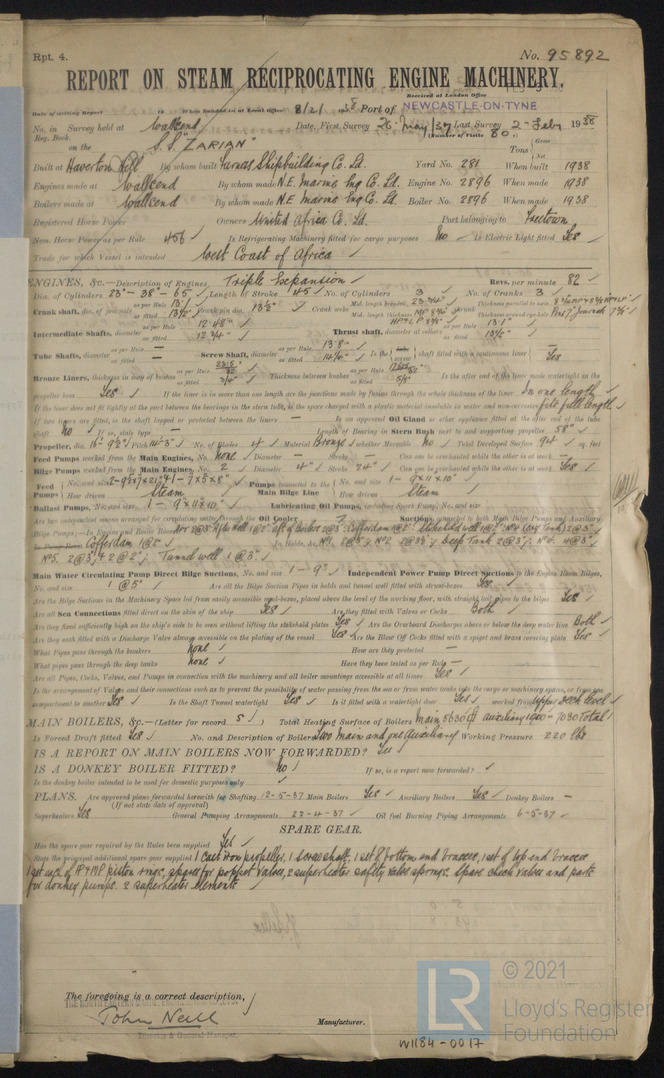 Rpt. 4. No. 95892
REPORT ON STEAM RECIPROCATING ENGINE MACHINERY.
Received at London Office
Date of writing Report When handed in at Local Office 8/2/1938 Port of NEWCASTLE-ON-TYNE
No. in Survey held at Wallsend Date, First Survey 26 May/37 Last Survey 2 - Feby 1938
Reg. Book. (Number of Visits 80)
on the S.S. "ZARIAN" Tons Gross Net
Built at Haverton Hill By whom built Furness Shipbuilding Co. Ld. Yard No. 281 When built 1938
Engines made at Wallsend By whom made N.E. Marine Eng Co. Ld. Engine No. 2896 When made 1938
Boilers made at Wallsend By whom made N.E. Marine Eng Co. Ld. Boiler No. 2896 When made 1938
Registered Horse Power Owners United Africa Co. Ld. Port belonging to Freetown
Nom. Horse Power as per Rule 456 Is Refrigerating Machinery fitted for cargo purposes No Is Electric Light fitted Yes
Trade for which Vessel is intended West Coast of Africa
ENGINES, &c.—Description of Engines Triple Expansion Revs. per minute 82
Dia. of Cylinders 23" - 38 - 65 Length of Stroke 45 No. of Cylinders 3 No. of Cranks 3
Crank shaft, dia. of journals as per Rule 13.1 as fitted 13½" Crank pin dia. 13½" Crank webs
Intermediate Shafts, diameter as per Rule 12.48" as fitted 12¾" Thrust shaft, diameter at collars as per Rule 13.1" as fitted 13½"
Tube Shafts, diameter as per Rule — as fitted — Screw Shaft, diameter as per Rule 13.8 as fitted Is the shaft fitted with a continuous liner Yes
Bronze Liners, thickness in way of bushes as per Rule as fitted ¾" Thickness between bushes as per Rule as fitted 5/8" Is the after end of the liner made watertight in the
propeller boss Yes If the liner is in more than one length are the junctions made by fusion through the whole thickness of the liner In one length
If the liner does not fit tightly at the part between the bearings in the stern tube, is the space charged with a plastic material insoluble in water and non-corrosive fits full length
If two liners are fitted, is the shaft lapped or protected between the liners — Is an approved Oil Gland or other appliance fitted at the after end of the tube
shaft No If so, state type — Length of Bearing in Stern Bush next to and supporting propeller 58"
Propeller, dia. 16'-9½" Pitch No. of Blades 4 Material Bronze whether Moveable No Total Developed Surface 94 sq. feet
Feed Pumps worked from the Main Engines, No. None Diameter — Stroke — Can one be overhauled while the other is at work —
Bilge Pumps worked from the Main Engines, No. 2 Diameter 4" Stroke 24" Can one be overhauled while the other is at work Yes
Feed Pumps No. and size 2-9½x7x21 & 1-7x5x8" How driven Steam Pumps connected to the Main Bilge Line No. and size 1- 9"x11"x10" How driven Steam
Ballast Pumps, No. and size 1- 9"x11"x10" Lubricating Oil Pumps, including Spare Pump, No. and size
Are two independent means arranged for circulating water through the Oil Cooler Suctions, connected to both Main Bilge Pumps and Auxiliary
Cofferdam 1@2" In Holds, &c. No.1. 2@3"; No2. 2@3½"; Deep Tank 2@3"; No4. 4@3"
No5. 2@3; + 2@2"; Tunnel well 1@3"
Main Water Circulating Pump Direct Bilge Suctions, No. and size 1 - 9" Independent Power Pump Direct Suctions to the Engine Room Bilges,
No. and size 1@5" Are all the Bilge Suction Pipes in holds and tunnel well fitted with strum-boxes Yes
Are the Bilge Suctions in the Machinery Space led from easily accessible mud-boxes, placed above the level of the working floor, with straight tail pipes to the bilges Yes
Are all Sea Connections fitted direct on the skin of the ship Yes Are they fitted with Valves or Cocks Both
Are they fixed sufficiently high on the ship's side to be seen without lifting the stokehold plates Yes Are the Overboard Discharges above or below the deep water line Both
Are they each fitted with a Discharge Valve always accessible on the plating of the vessel Yes Are the Blow Off Cocks fitted with a spigot and brass covering plate Yes
What Pipes pass through the bunkers None How are they protected —
What pipes pass through the deep tanks None Have they been tested as per Rule —
Are all Pipes, Cocks, Valves, and Pumps in connection with the machinery and all boiler mountings accessible at all times Yes
Is the arrangement of Valves and their connections such as to prevent the possibility of water passing from the sea or from water tanks into the cargo or machinery spaces, or from one
compartment to another Yes Is the Shaft Tunnel watertight Yes Is it fitted with a watertight door Yes worked from Upper Deck level
MAIN BOILERS, &c.—(Letter for record S) Total Heating Surface of Boilers Main 5630 auxiliary 1400 = 7030 Total
Is Forced Draft fitted Yes No. and Description of Boilers Two Main and one Auxiliary Working Pressure 220 lbs
IS A REPORT ON MAIN BOILERS NOW FORWARDED? Yes
IS A DONKEY BOILER FITTED? No If so, is a report now forwarded?
Is the donkey boiler intended to be used for domestic purposes only
PLANS. Are approved plans forwarded herewith for Shafting 12-5-37 Main Boilers Yes Auxiliary Boilers Yes Donkey Boilers —
(If not state date of approval)
Superheaters Yes General Pumping Arrangements 22-4-37 Oil fuel Burning Piping Arrangements 6-5-37
SPARE GEAR.
Has the spare gear required by the Rules been supplied Yes
State the principal additional spare gear supplied 1 cast iron propeller, 1 screw shaft, 1 set of bottom end brasses, 1 set of top end brasses
1 set each of HP & MP piston rings, spares for poppet valves, 2 superheater safety valve springs. Spare check valves and parts
for donkey pumps. 2 superheater elements.
The foregoing is a correct description,
John Neill
Director & General Manager. Manufacturer.
W1184-0017
LR
© 2021
Lloyd's Register
Foundation